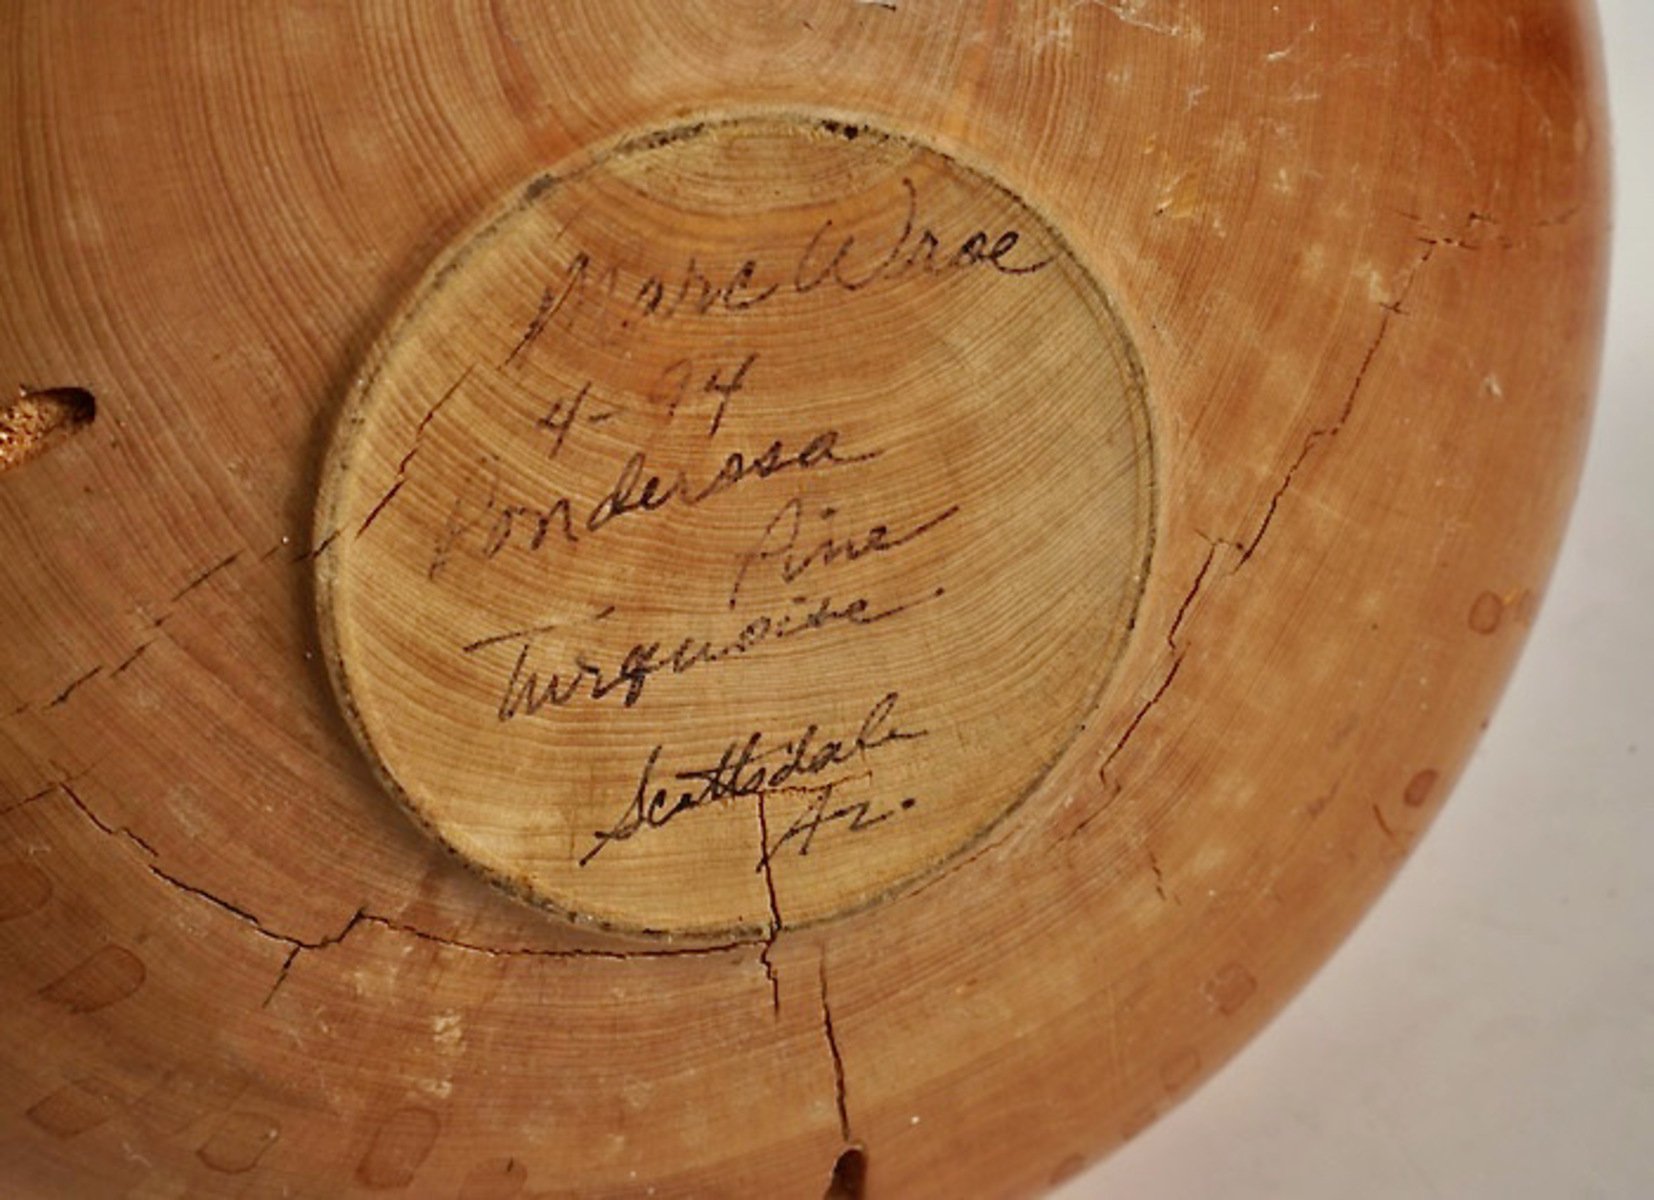 Marc Wroe
4-94
Ponderosa
Pine
Turquoise.
Scottsdale
Az.